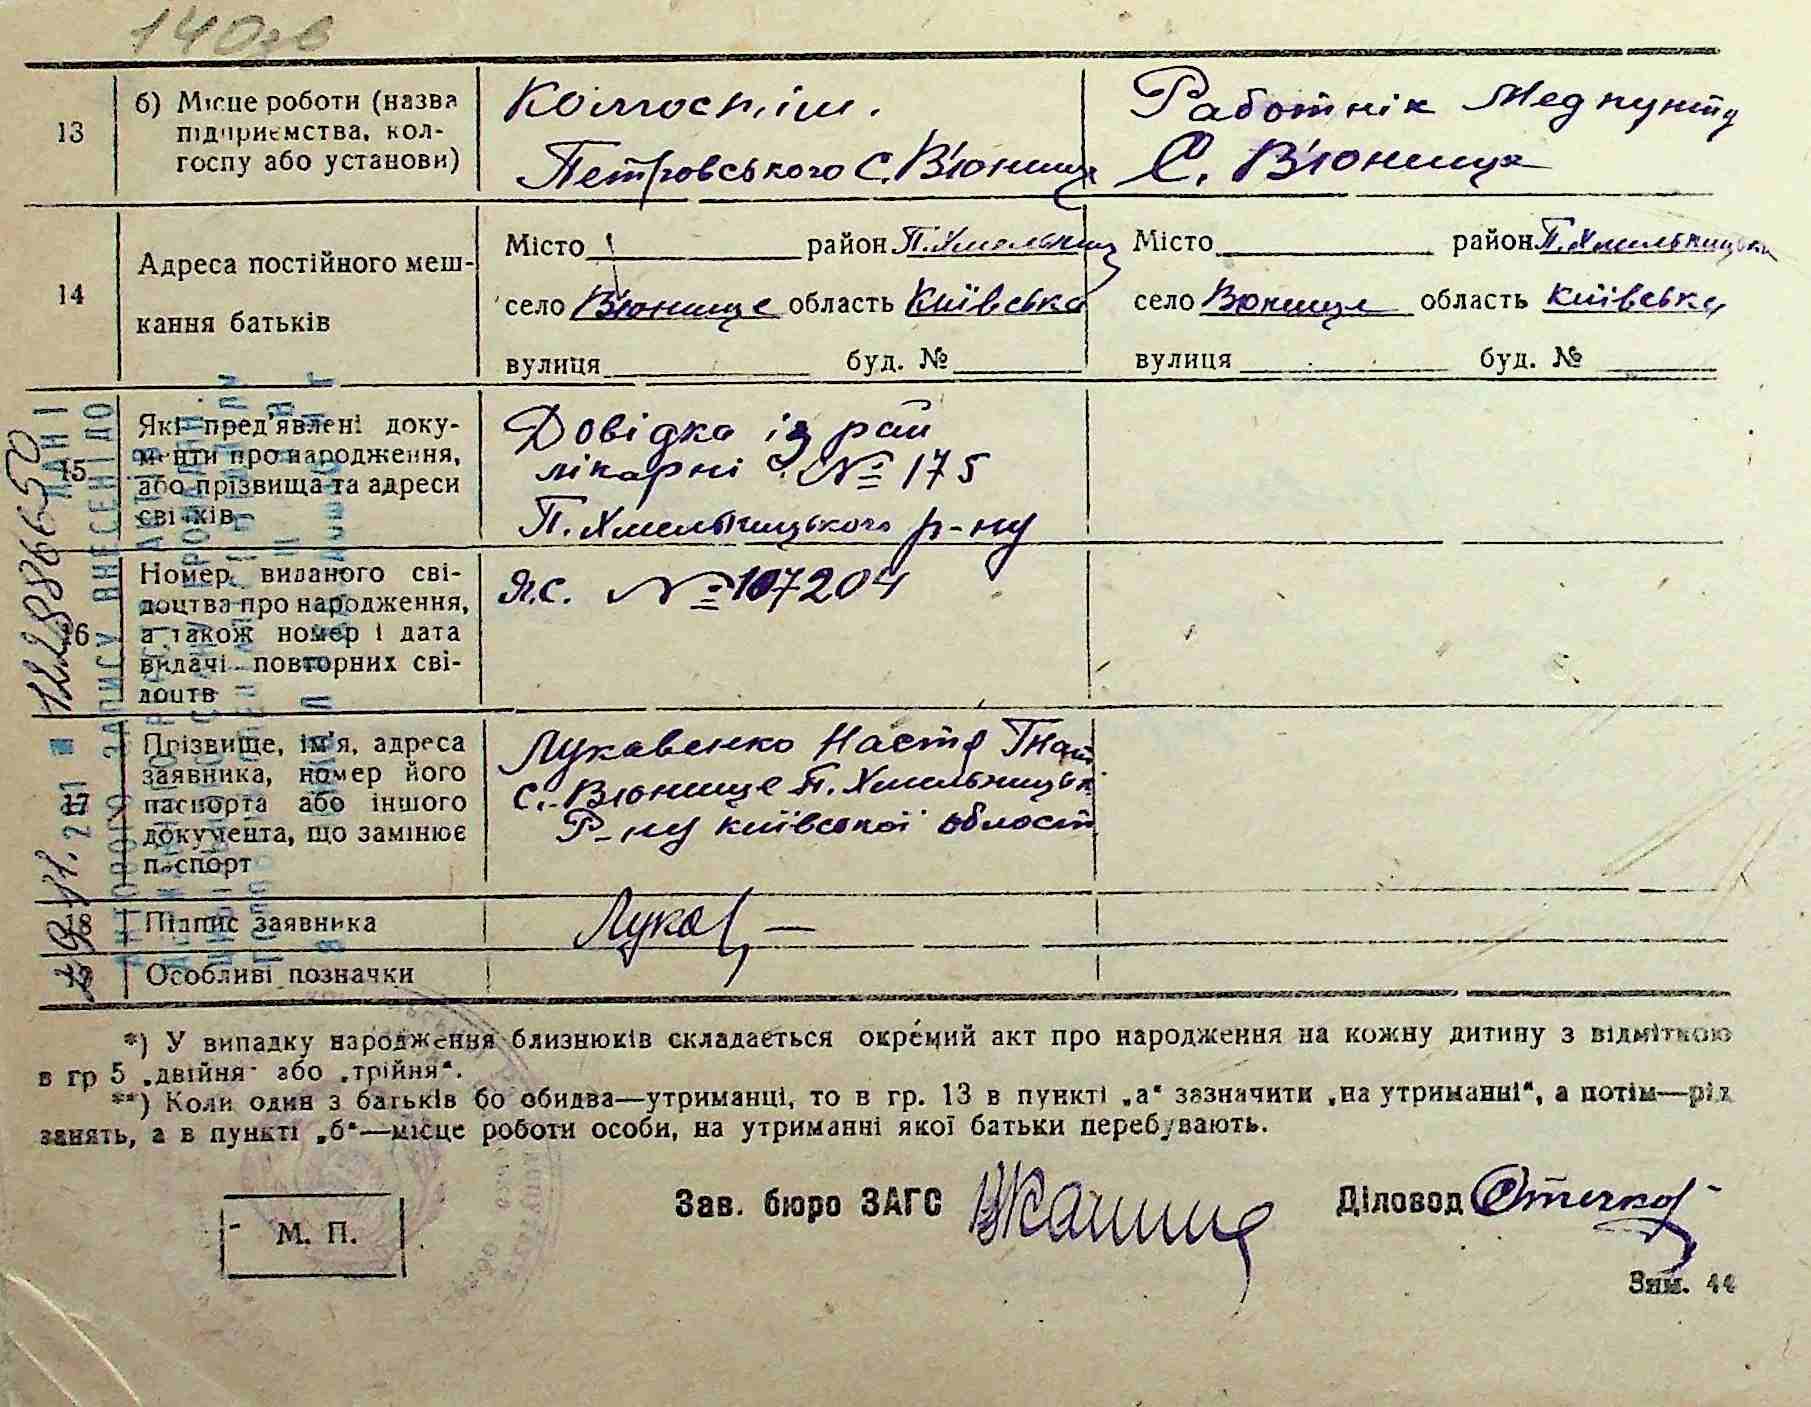 140зв
13 б) Місце роботи (назва
підприємства, кол-
госпу або установи)
Колгоспін.
Петровського с. В'юнище
Работнік Медпункту
С. В'юнище
14 Адреса постійного меш-
кання батьків
Місто район П.Хмельниц
село В'юнище область Київська
вулиця буд. №
Місто район П.Хмельницьки
село Вюнище область Київська
вулиця буд. №
15 Які пред'явлені доку-
менти про народження,
або прізвища та адреси
свідків
Довідка із рай
лікарні №175
П. Хмельницького р-ну
16 Номер виданого сві-
доцтва про народження,
а також номер і дата
видачі повторних сві-
доцтв
Я.С. №107204
17 Прізвище, ім'я, адреса
заявника, номер його
паспорта або іншого
документа, що замінює
паспорт
Лукавенко Настя Гнат
с. Вюнище П. Хмельницьк
Р-ну Київської област
18 Підпис заявника
Лукав
19 Особливі позначки
*) У випадку народження близнюків складається окре́мий акт про народження на кожну дитину з відміткою
в гр 5 „двійня" або „трійня".
**) Коли один з батьків бо обидва—утриманці, то в гр. 13 в пункті „а" зазначити „на утриманні", а потім—рід
занять, а в пункті „б"—місце роботи особи, на утриманні якої батьки перебувають.
Зав. бюро ЗАГС
Діловод
М. П.
Зам. 44